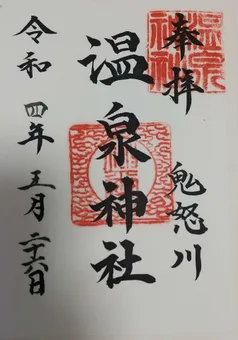 奉拝
鬼怒川
温泉神社
令和四年五月二十六日